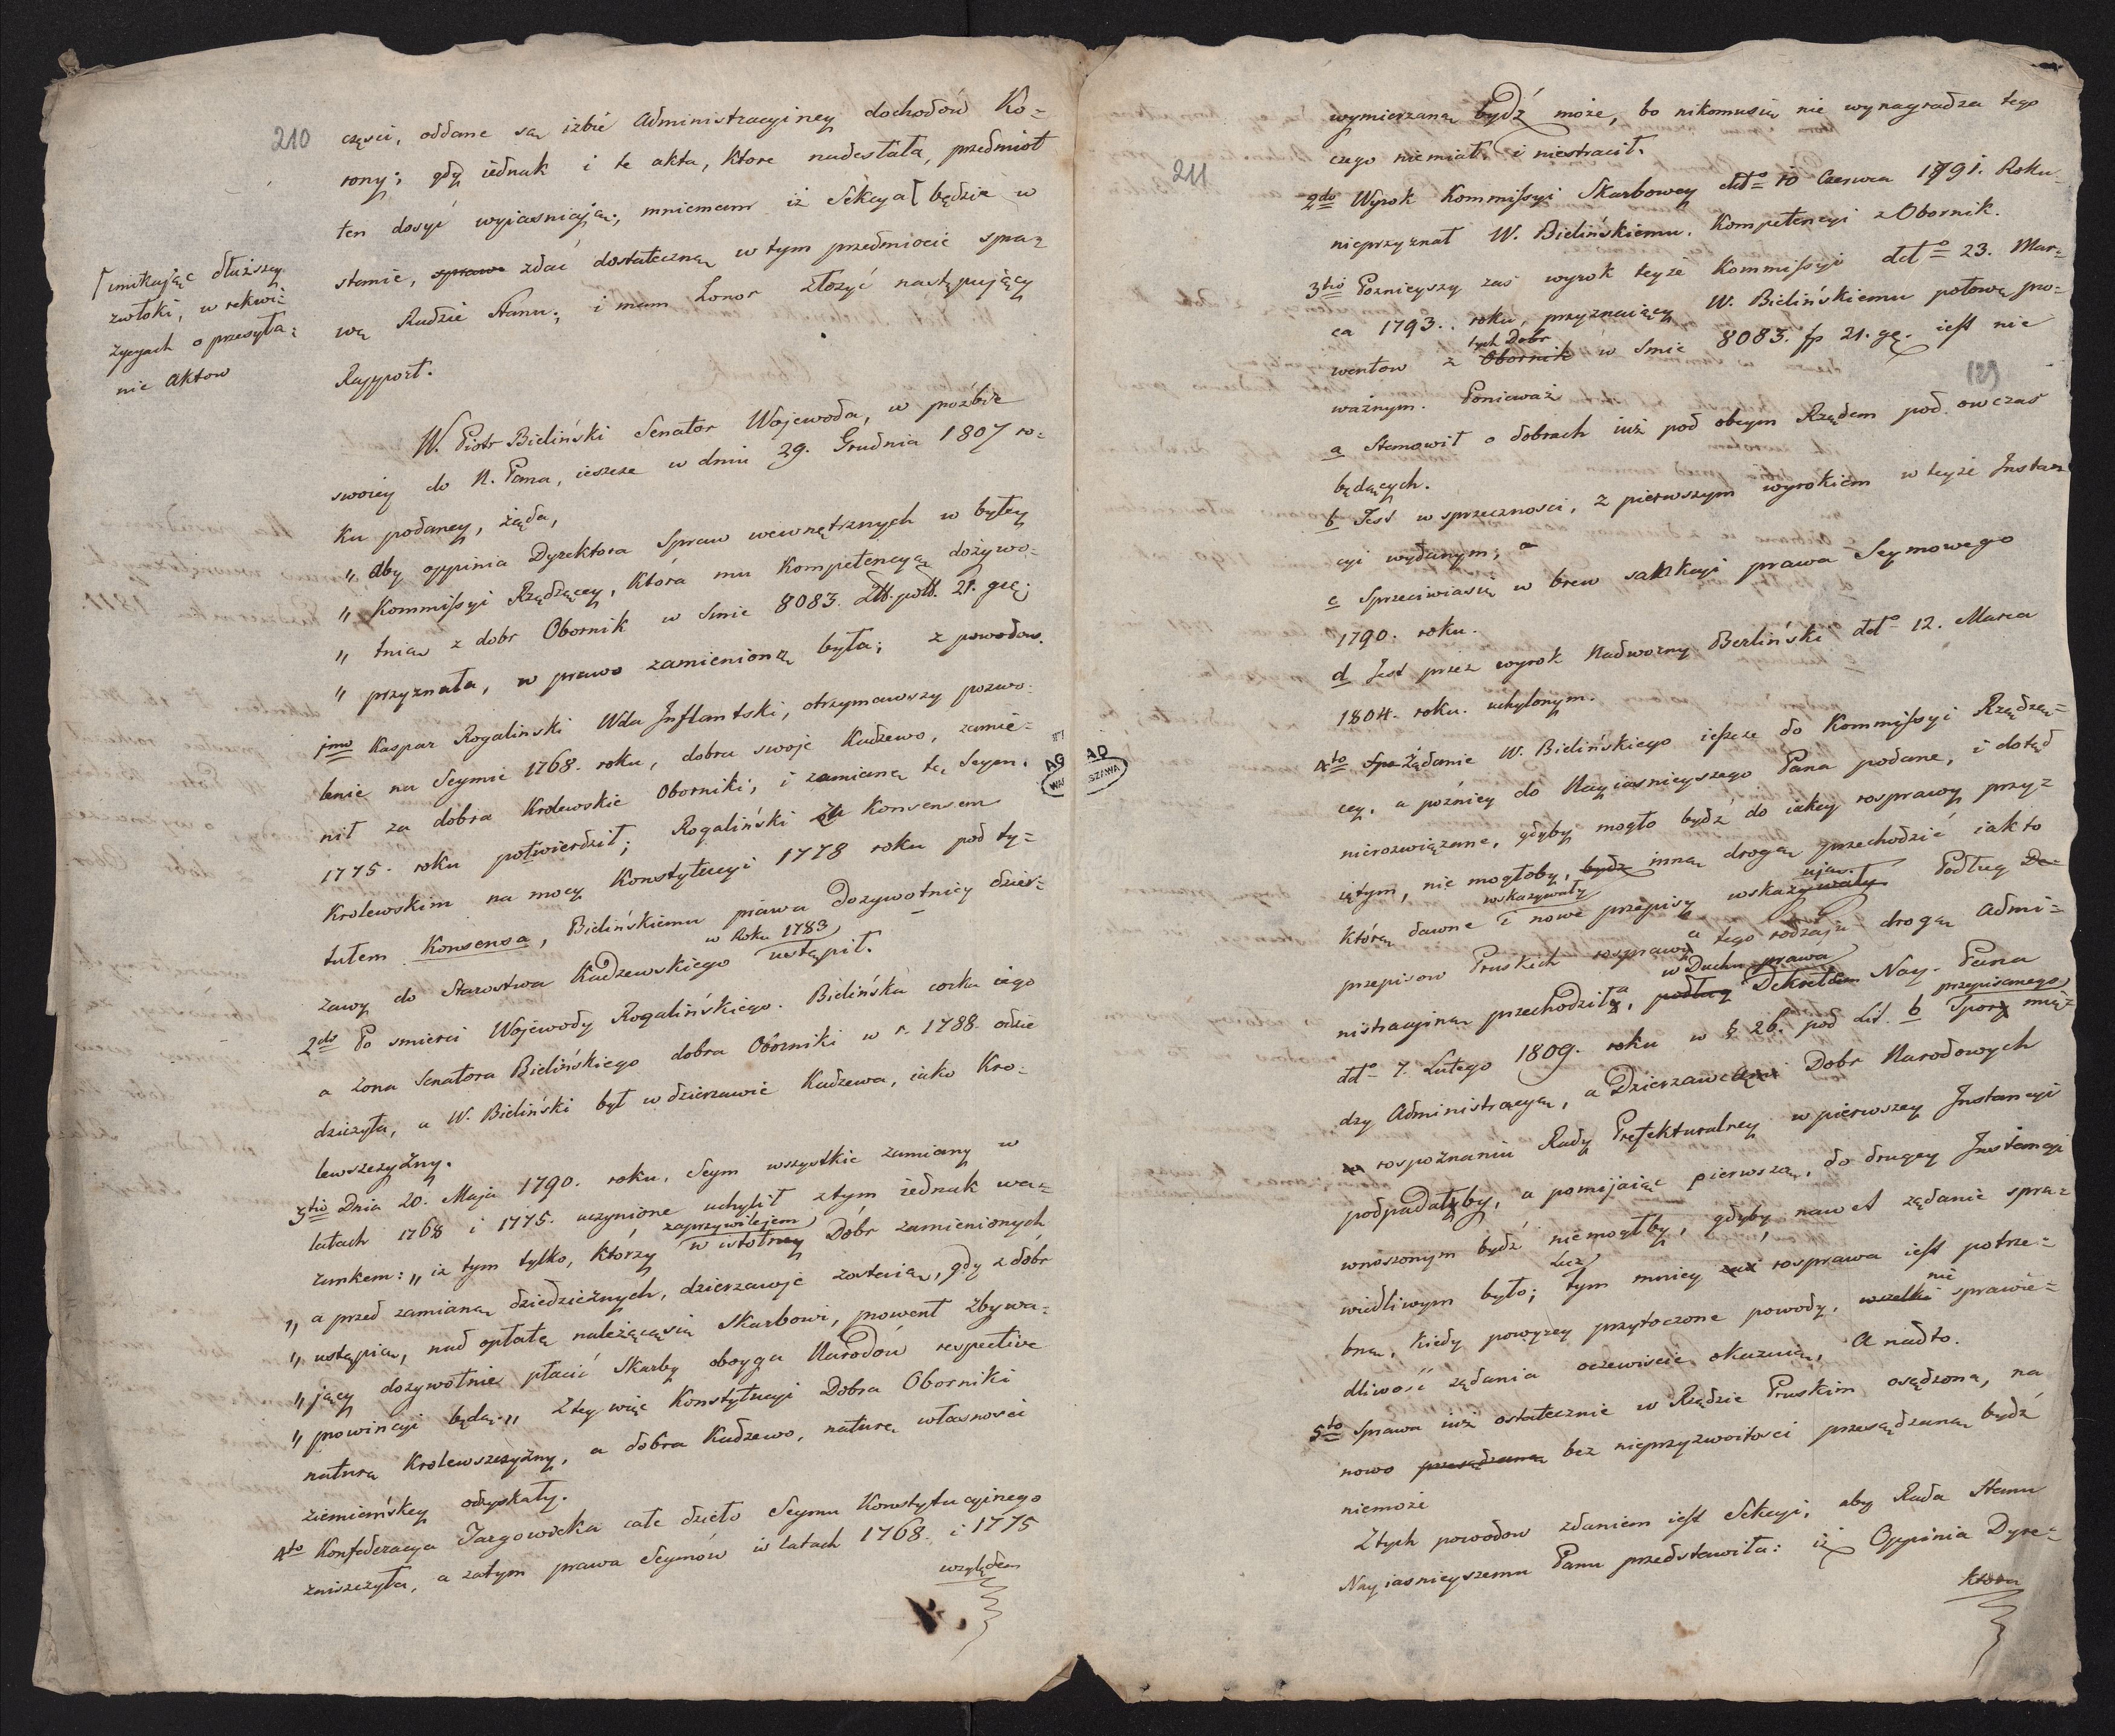 210
częsci, oddane są izbie Administracyiney dochodów Ko-
rony; gdy iednak i te akta, ktore nadesłała, przedmiot
ten dosyć wyiasniaią; mniemam iż Sekcya [ będzie w
stanie, sprawę zdać dostateczną w tym przedmiocie spra-
wę Radzie Stanu; i mam honor złożyć następuiący
Rapport.
[ unikaiąc dłuższey
zwłoki, w rekwi-
zycyach o przesyła-
nie Aktow
W. Piotr Bieliński Senator Wojewoda, w proźbie
swoiey do N. Pana, ieszcze w dniu 29. Grudnia 1807 ro-
ku podaney, żąda,
„ Aby oppinia Dyrektora Spraw wewnętrznych w byłey
„ Kommissyi Rządzącey, która mu Kompetencyą dożywo-
„ tnią z dobr Obornik w Smie 8083. Złł. poll. 21. grę;
„ przyznała, w prawo zamienioną była; z powodow.
jmo Kaspar Rogalinski Wda Inflantski, otrzymawszy pozwo-
lenie na Seymie 1768. roku, dobra swoje Kudzewo, zamie-
nił za dobra Krolewskie Oborniki, i zamianę tę Seym
1775. roku potwierdził; Rogaliński za Konsensem
Krolewskim na mocy Konstytucyi 1778 roku pod ty-
tułem Konsensa, Bielińskiemu prawa Dożywotniey dzier-
w Roku 1783
żawy do Starostwa Kudzewskiego ustąpił.
2do Po smierci Wojewody Rogalińskiego. Bielińska corka iego
a żona Senatora Bielińskiego dobra Oborniki w r. 1788. odzie
dziczyła, a W. Bieliński był w dzierzawie Kudzewa, iako Kro-
lewszczyzny.
3tio Dnia 20. Maja 1790. roku. Seym wszystkie zamiany w
latach 1768 i 1775. uczynione uchylił z tym iednak wa-
zaprzywilejem
runkem: „ iż tym tylko, którzy w istotney Dóbr zamienionych
„ a przed zamianą dziedzicznych, dzierzawje zostaią, gdy z dóbr
„ ustąpią, nad opłatę należącąsię Skarbowi, prowent zbywa-
„ jący dożywotnie płacić Skarby oboyga Narodów respective
„ prowincyi będą „ Z tey więc Konstytucyi Dobra Oborniki
naturę Krolewszczyzny, a dobra Kudzewo, naturę własnosci
ziemiańskiey odzyskały.
4to Konfederacya Targowicka całe dzieło Seymu Konstytucyinego
zniszczyła, a zatym prawa Seymów w latach 1768. i 1775
względem
AGAD
WARSZAWA
211
wymierzaną bydź może, bo nikomusię nie wynagradza tego
czego niemiał i niestracił.
2do Wyrok Kommissyi Skarbowey ddto 10 Czerwca 1791. Roku
nieprzyznał W. Bielińskiemu. Kompetencyi z Obornik.
3tio Poznieyszy zas wyrok teyże Kommissyi ddto 23. Mar-
ca 1793. roku, przyznaiący W. Bielińskiemu połowę pro-
tych Dobr
wentow z Obornik w Smie 8083. fp 21. gę. iest nie
(2)
ważnym. Ponieważ
a Stanowił o dobrach iuż pod obcym Rządem pod owczas
będących.
b Jest w sprzeczności, z pierwszym wyrokiem w teyże Instan
cyi wydanym; a
c Sprzeciwiasię w brew sankcyi prawa Seymowego
1790. roku.
d Jest przez wyrok Nadworny Berliński ddto 12. Marca
1804. roku. uchylonym.
4to Spr Żądanie W. Bielińskiego ieszcze do Kommissyi Rządzą-
cey, a poźniey do Nayiasnieyszego Pana podane, i dotąd
nierozwiązane, gdyby mogło bydź do iakey rosprawy przy-
iętym, nie mogłoby, bydz inną drogą przechodzić iak to
wskazywały uią.
którą dawne i nowe przepisy wskazywały Podług De-
przepisow Pruskich rosprawa tego rodzaju drogą Admi-
w Duchu prawa
nistracyiną przechodziła, podług Dekretem Nay. Pana
przepisanego
ddto 7. Lutego 1809. roku w § 26. pod Lit. b Spory mię-
dzy Administracyą, a Dzierzawcami Dobr Narodowych
w rospoznaniu Rady Prefekturalney w pierwszey Instancyi
podpadałyby, a pomijaiąc pierwszą, do drugiey Instancyi
wnoszonym bydź niemogłby, gdyby nawet żądanie spra-
Lecz
wiedliwym było; tym mniey zas rosprawa iest potrze-
bna, kiedy powyżey przytoczone powody, wszelki nie sprawie-
dliwość żądania oczewiście okazuią, A nadto.
5to Sprawa iuż ostatecznie w Rządzie Pruskim osądzona, na
nowo przesądzaną bez nieprzyzwoitości przesądzaną bydź
niemoże
Z tych powodow zdaniem iest Sekcyi, aby Rada Stanu
Nayiasnieyszemu Panu przedstawiła: iż Oppinia Dyre-
ktora